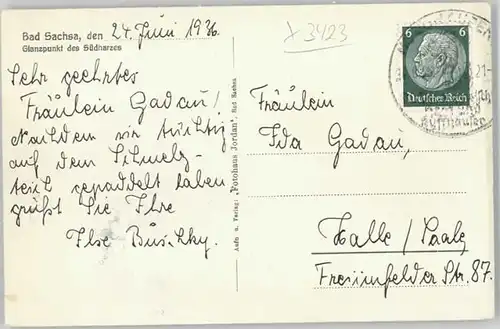 Bad Sachsa, den 24. Juni 1936
Glanzpunkt des Südharzes
x 3423
Sehr geehrtes
Fräulein Gadau!
Nachdem wir tüchtig
auf dem Schmelz-
teich gepaddelt haben
grüßt Sie Ihre
Ilse Buschky.
Aufn. u. Verlag: "Fotohaus Jordan", Bad Sachsa
6 6
Deutsches Reich
Kyffhäuser
Fräulein
Ida Gadau,
Halle/Saale
Freiimfelder Str. 87.